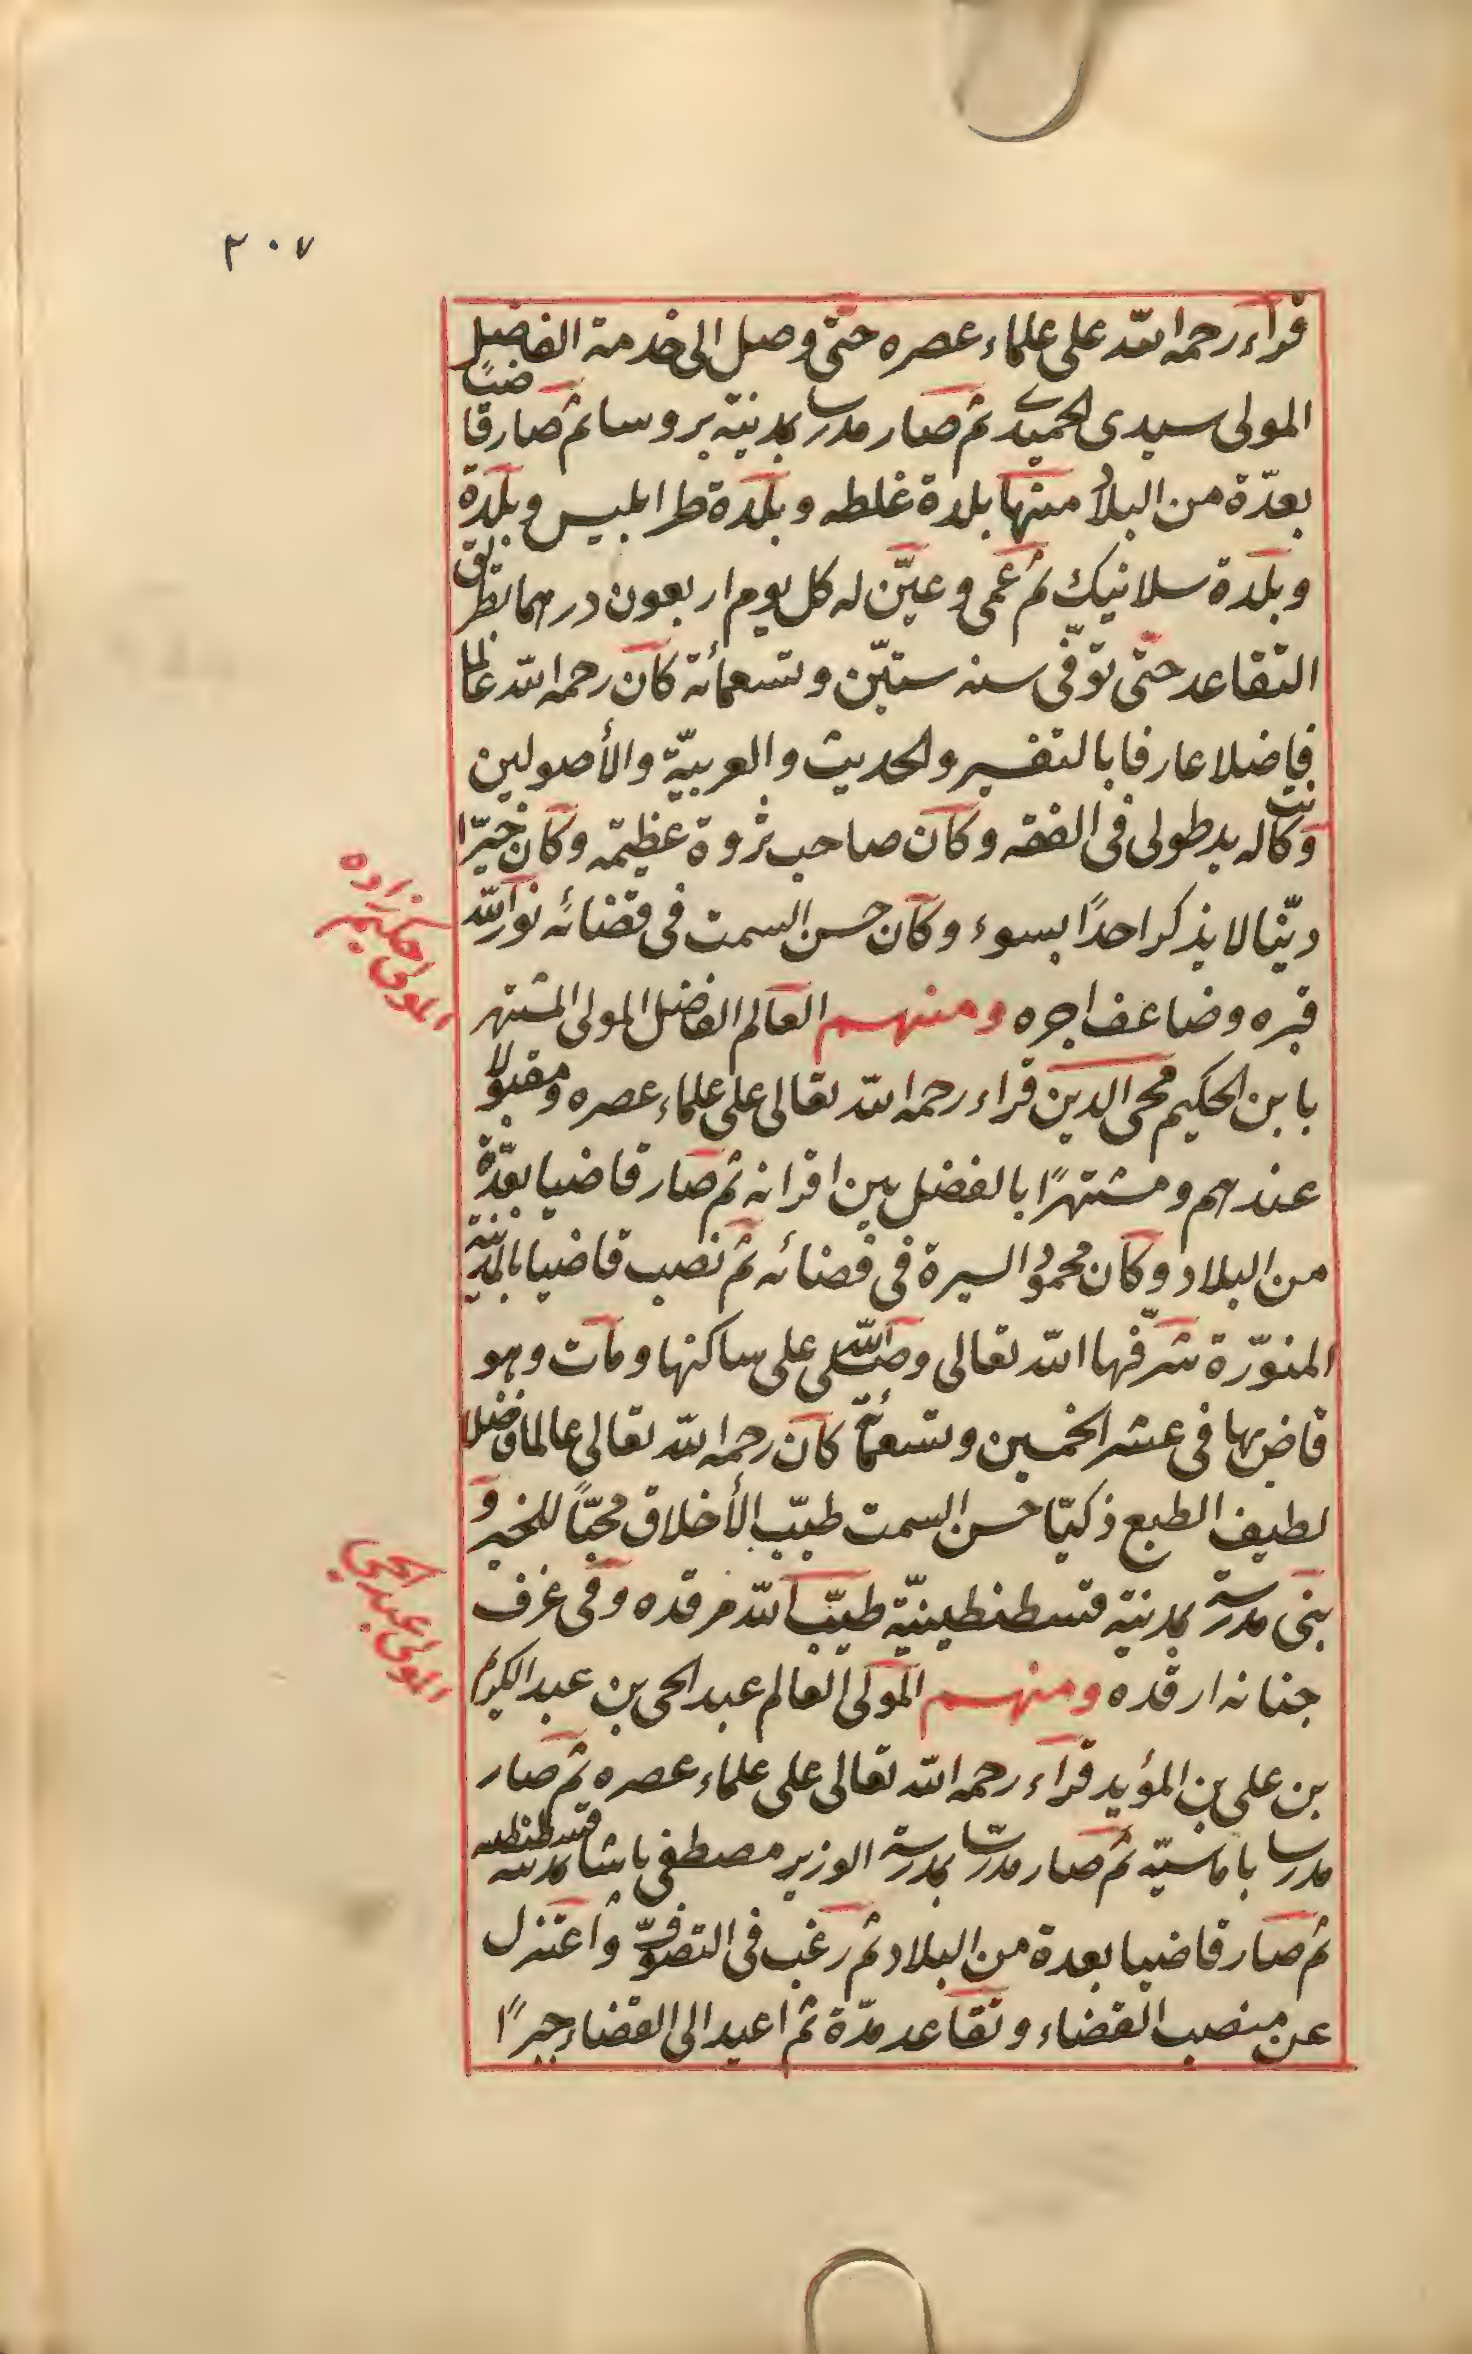 ٣٠٧
قراء رحمه الله على علماء عصره حتى وصل الى خدمة الفاضل
المولى سيدى الحميدى ثم صار مدرسا بمدينة بروسا ثم صار قاضيًا
بعدّة من البلاد منها بلدة غلطه وبلدة طرابليس وبلدة
وبلدة سلانيك ثم عمى وعيّن له كل يوم اربعون درهما بطريق
التقاعد حتى توفّى سنه ستّين وتسعمائة كان رحمه الله عالما
فاضلا عارفا بالتفسير والحديث والعربيّة والأصولين
وكانت له يد طولى فى الفقه وكان صاحب ثروة عظيمه وكان خيّرا
ديّنا لا يذكر احدًا بسوء وكان حسن السمت فى قضائه نور الله
قبره وضاعف اجره ومنهم العالم الفاضل المولى المشتهر
المولى حكيم زاده
بابن الحكيم محى الدين قراء رحمه الله تعالى على علماء عصره ومقبولا
عندهم ومشتهرًا بالفضل بين اقرانه ثم صار قاضيا بعدّة
من البلاد وكان محمود السيرة فى قضائه ثم نصب قاضيا بالمدينة
المنوّرة شرّفها الله تعالى وصلى الله على ساكنها ومات وهو
قاض بها فى عشر الخمسين وتسعمائة كان رحمه الله تعالى عالما فاضلا
لطيف الطبع ذكيّا حسن السمت طيّب الأخلاق محبًّا للخير و
بنى مدرسة بمدينة قسطنطينيّة طيّب الله مرقده وفى غرف
جنانه ارقده ومنهم المولى العالم عبد الحى بن عبد الكريم
المولى عبد الحى
بن على بن المؤيد قراء رحمه الله تعالى على علماء عصره ثم صار
مدرسا باماسيّه ثم صار مدرسّا بمدرسة الوزير مصطفى باشا بمدينة قسطنطنيه
ثم صار قاضيا بعدة من البلاد ثم رغب فى التصوّف واعتزل
عن منصب القضاء وتقاعد مدّة ثم اعيد الى القضاء جبرًا